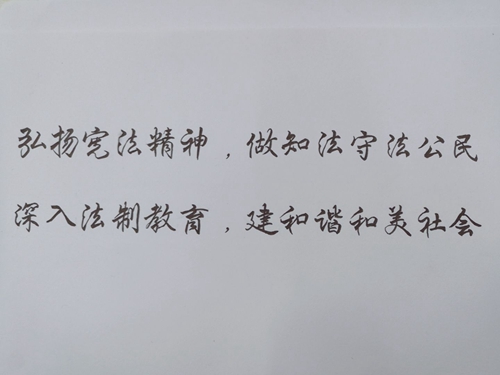 弘扬宪法精神，做知法守法公民
深入法制教育，建和谐和美社会